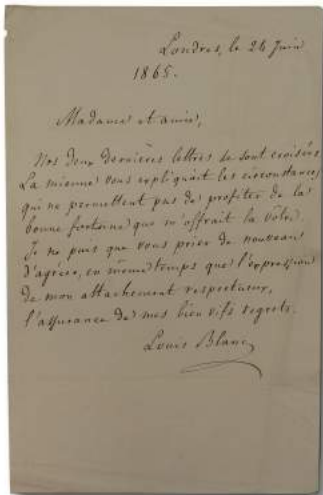 Londres, le 26 Juin
1865.
Madame et amie,
Nos deux dernières lettres se sont croisées.
La mienne vous expliquait les circonstances
qui ne permettent pas de profiter de la
bonne fortune que m'offrait la vôtre.
Je ne puis que vous prier de nouveau
d'agréer, en même temps que l'expression
de mon attachement respectueux,
l'assurance de mes bien vifs regrets.
Louis Blanc